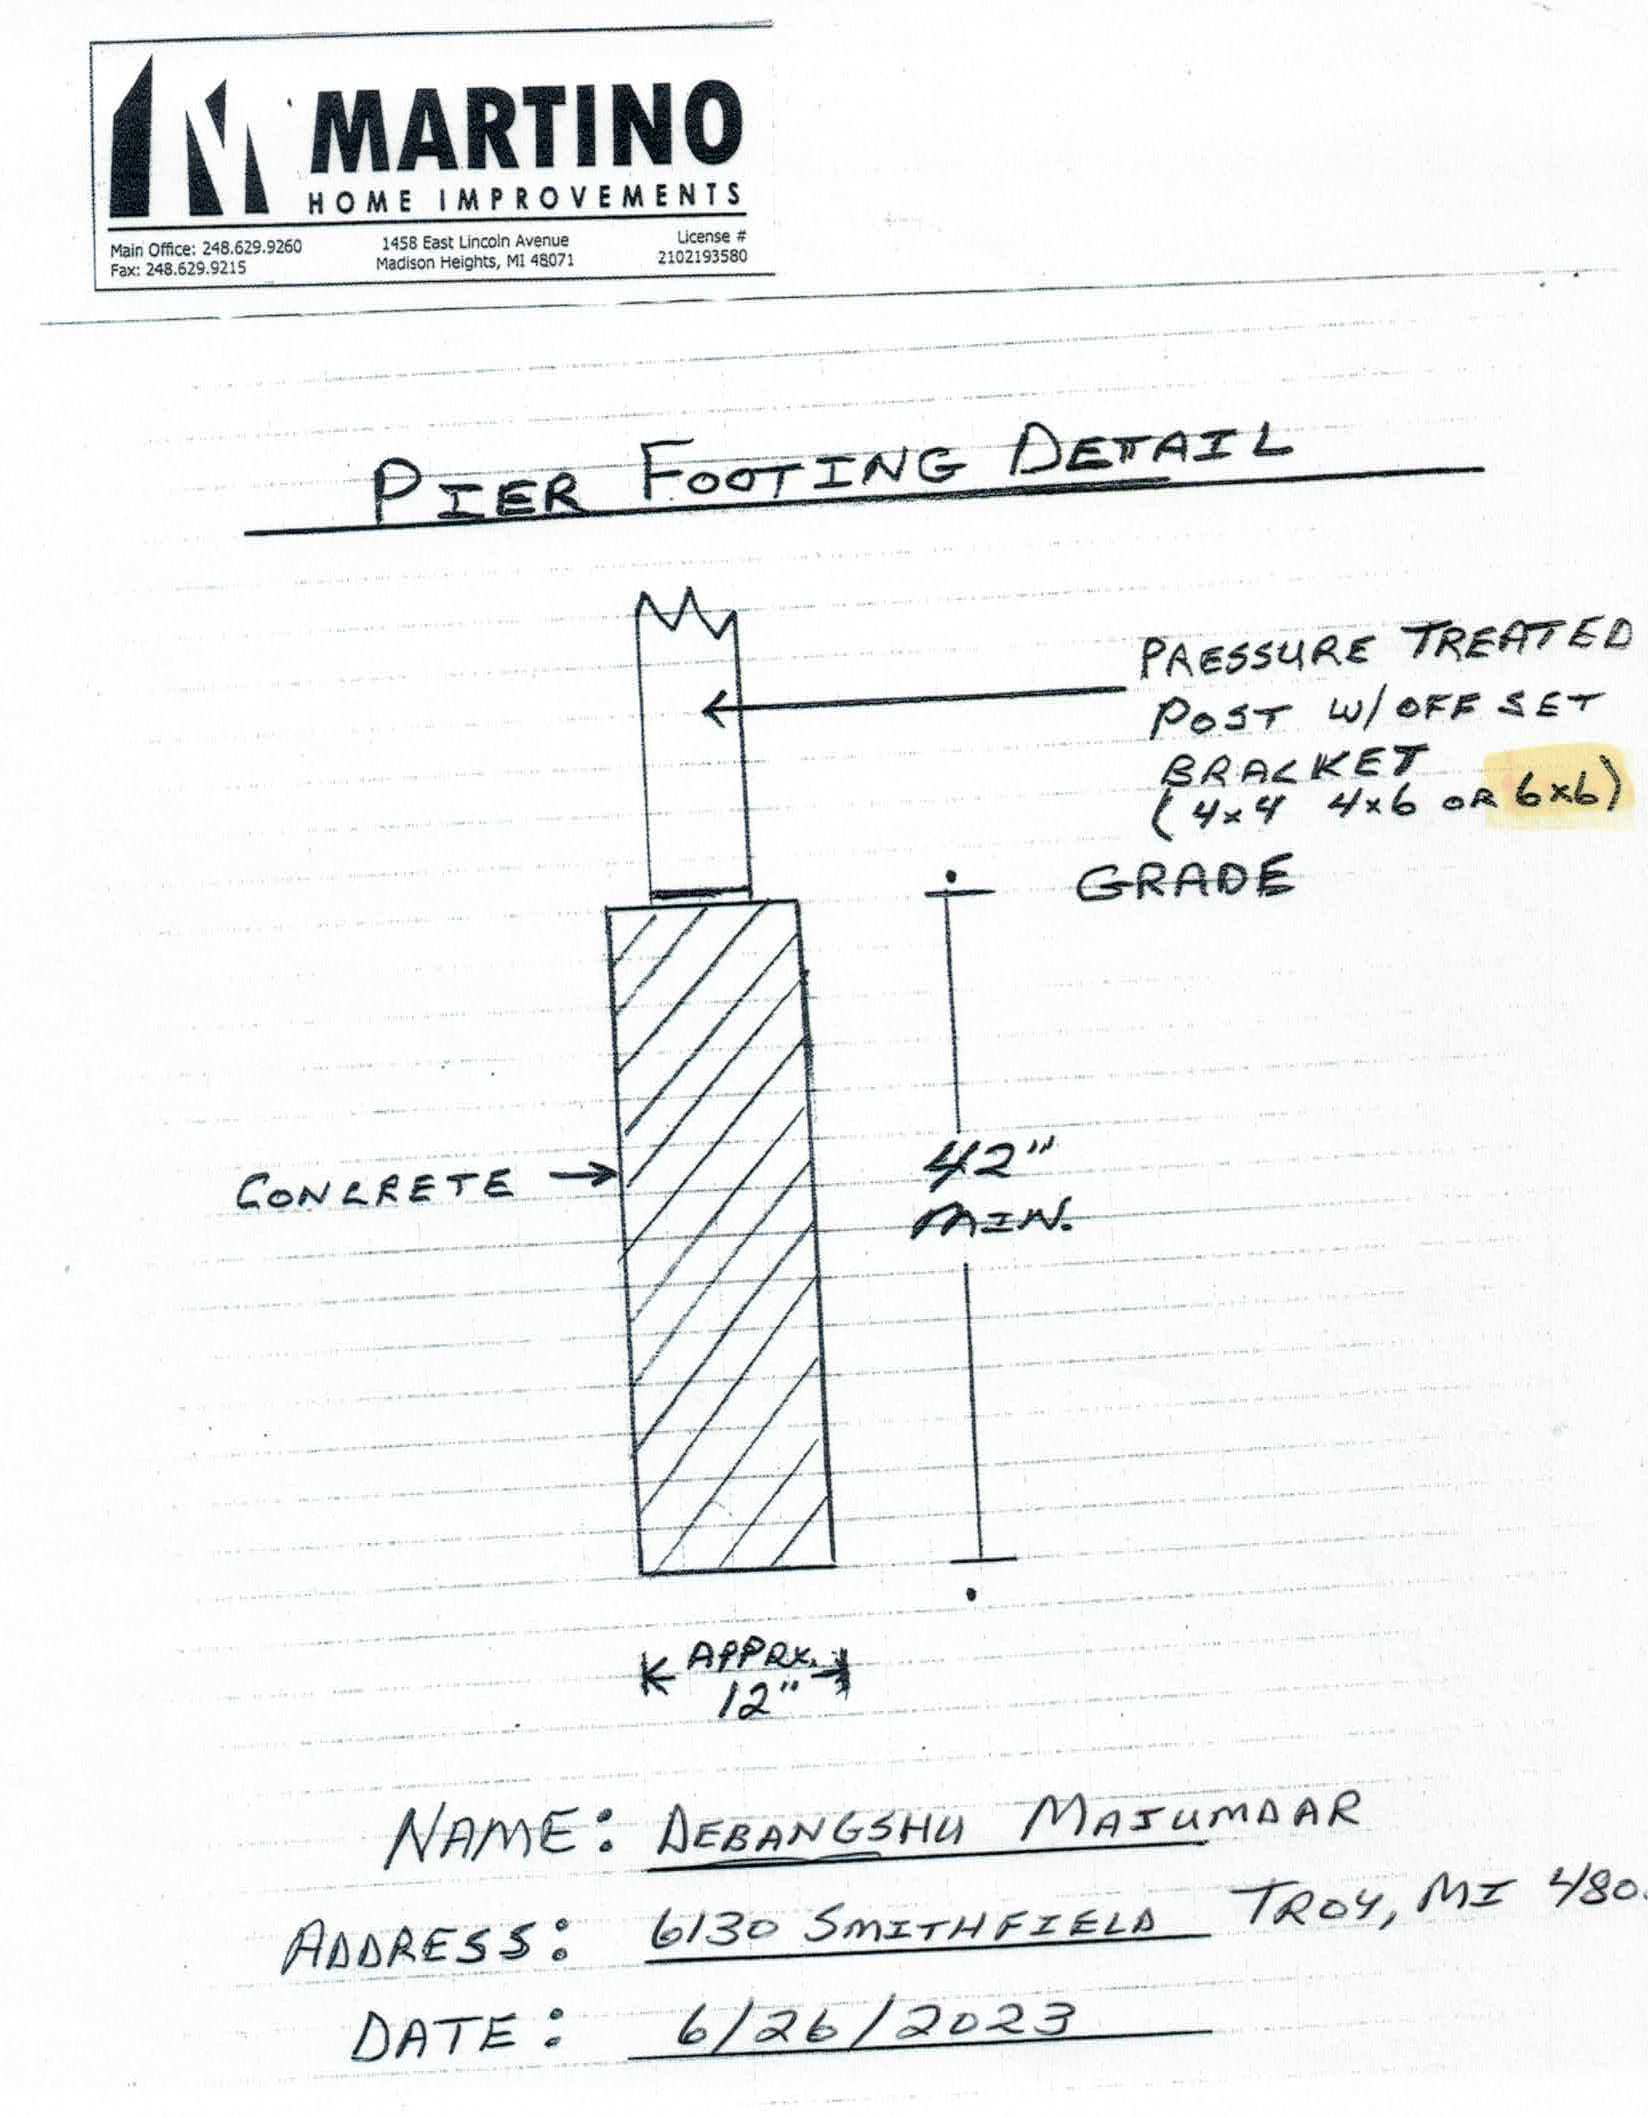 MARTINO
HOME IMPROVEMENTS
Main Office: 248.629.9260
Fax: 248.629.9215
1458 East Lincoln Avenue
Madison Heights, MI 48071
License #
2102193580
PIER FOOTING DETAIL
PRESSURE TREATED
POST W/ OFF SET
BRACKET
(4x4 4x6 OR 6x6)
GRADE
42"
MIN.
CONCRETE
APPRX.
12"
NAME: DEBANGSHU MAJUMDAR
ADDRESS: 6130 SMITHFIELD TROY, MI 480
DATE: 6/26/2023